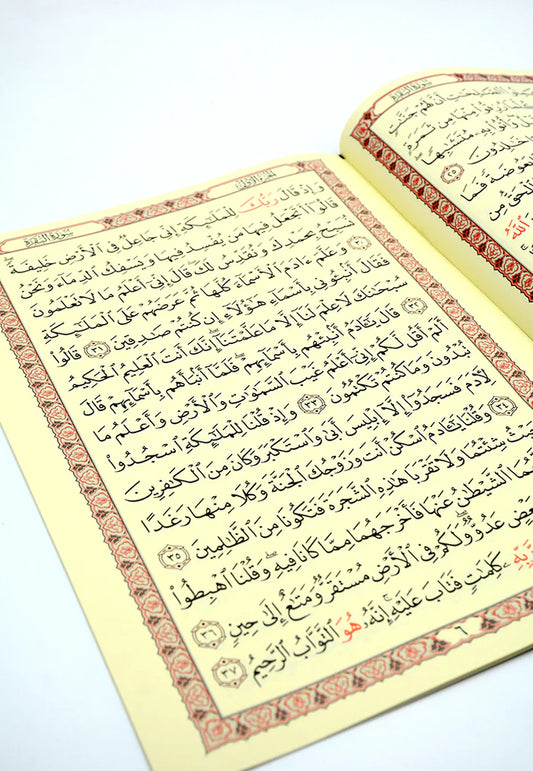 سورة البقرة
أَنَّ لَهُمْ جَنَّٰتٍ
مِنْهَا مِن ثَمَرَةٍ
وَأُتُوا۟ بِهِۦ مُتَشَٰبِهًا
٢٥
بَعُوضَةً فَمَا
ٱلْحَقُّ مِن
ٱللَّهُ
الجزء الأول
سورة البقرة
وَإِذْ قَالَ رَبُّكَ لِلْمَلَٰٓئِكَةِ إِنِّى جَاعِلٌ فِى ٱلْأَرْضِ خَلِيفَةً
قَالُوٓا۟ أَتَجْعَلُ فِيهَا مَن يُفْسِدُ فِيهَا وَيَسْفِكُ ٱلدِّمَآءَ وَنَحْنُ
نُسَبِّحُ بِحَمْدِكَ وَنُقَدِّسُ لَكَ قَالَ إِنِّىٓ أَعْلَمُ مَا لَا تَعْلَمُونَ
٣٠ وَعَلَّمَ ءَادَمَ ٱلْأَسْمَآءَ كُلَّهَا ثُمَّ عَرَضَهُمْ عَلَى ٱلْمَلَٰٓئِكَةِ
فَقَالَ أَنۢبِـُٔونِى بِأَسْمَآءِ هَٰٓؤُلَآءِ إِن كُنتُمْ صَٰدِقِينَ ٣١ قَالُوا۟
سُبْحَٰنَكَ لَا عِلْمَ لَنَآ إِلَّا مَا عَلَّمْتَنَآ إِنَّكَ أَنتَ ٱلْعَلِيمُ ٱلْحَكِيمُ
٣٢ قَالَ يَٰٓـَٔادَمُ أَنۢبِئْهُم بِأَسْمَآئِهِمْ فَلَمَّآ أَنۢبَأَهُم بِأَسْمَآئِهِمْ قَالَ
أَلَمْ أَقُل لَّكُمْ إِنِّىٓ أَعْلَمُ غَيْبَ ٱلسَّمَٰوَٰتِ وَٱلْأَرْضِ وَأَعْلَمُ مَا
تُبْدُونَ وَمَا كُنتُمْ تَكْتُمُونَ ٣٣ وَإِذْ قُلْنَا لِلْمَلَٰٓئِكَةِ ٱسْجُدُوا۟
لِـَٔادَمَ فَسَجَدُوٓا۟ إِلَّآ إِبْلِيسَ أَبَىٰ وَٱسْتَكْبَرَ وَكَانَ مِنَ ٱلْكَٰفِرِينَ
٣٤ وَقُلْنَا يَٰٓـَٔادَمُ ٱسْكُنْ أَنتَ وَزَوْجُكَ ٱلْجَنَّةَ وَكُلَا مِنْهَا رَغَدًا
حَيْثُ شِئْتُمَا وَلَا تَقْرَبَا هَٰذِهِ ٱلشَّجَرَةَ فَتَكُونَا مِنَ ٱلظَّٰلِمِينَ ٣٥
ٱلشَّيْطَٰنُ عَنْهَا فَأَخْرَجَهُمَا مِمَّا كَانَا فِيهِ وَقُلْنَا ٱهْبِطُوا۟
عَدُوٌّ وَلَكُمْ فِى ٱلْأَرْضِ مُسْتَقَرٌّ وَمَتَٰعٌ إِلَىٰ حِينٍ ٣٦
رَّبِّهِۦ كَلِمَٰتٍ فَتَابَ عَلَيْهِ إِنَّهُۥ هُوَ ٱلتَّوَّابُ ٱلرَّحِيمُ ٣٧
٦